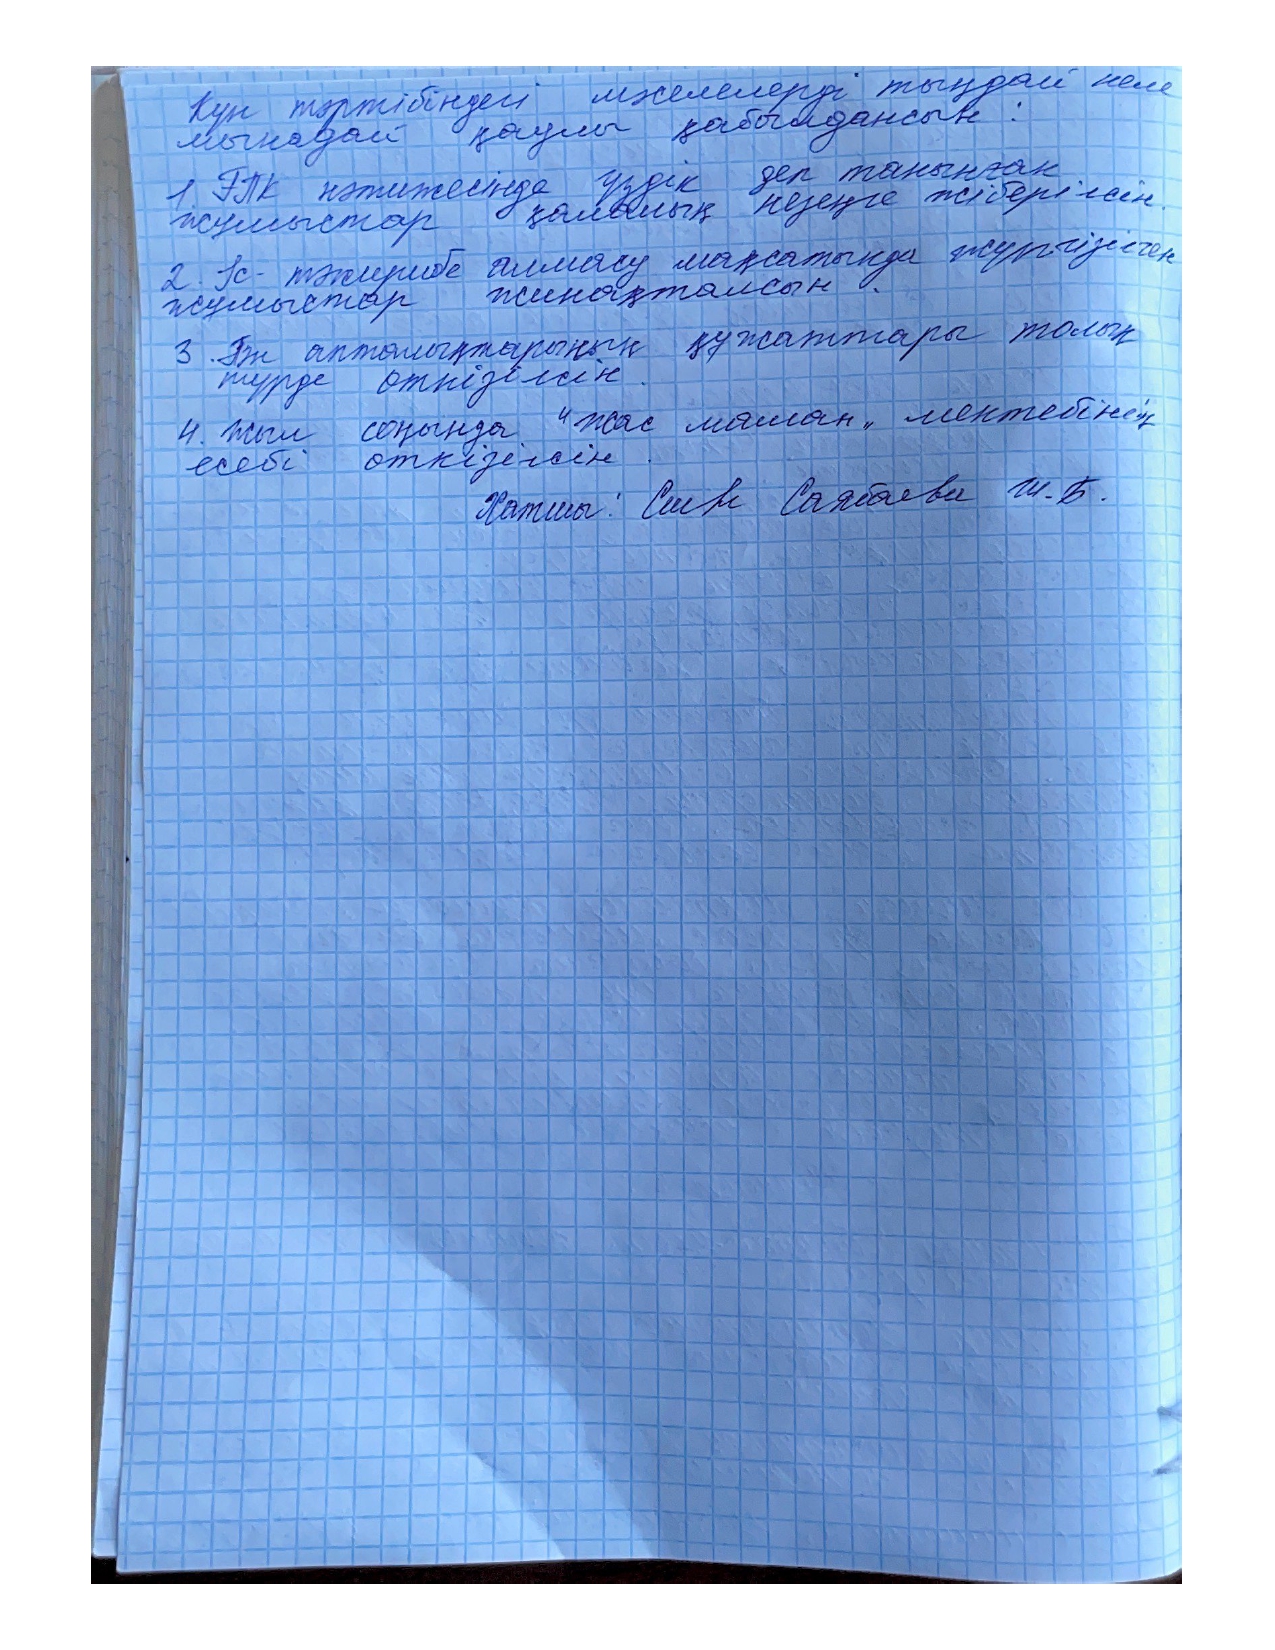 Күн тәртібіндегі мәселелерді тыңдай келе
мынадай қаулы қабылдансын:
1. ҒПК нәтижесінде үздік деп танынған
жұмыстар қалалық кезеңге жіберілсін.
2. Іс-тәжірибе алмасу мақсатында жүргізілген
жұмыстар жинақталсын.
3. апталықтарының құжаттары толық
түрде өткізілсін.
4. Жыл соңында "Жас маман" мектебінің
есебі өткізілсін.
Хатшы: Саябаева Ш.Б.